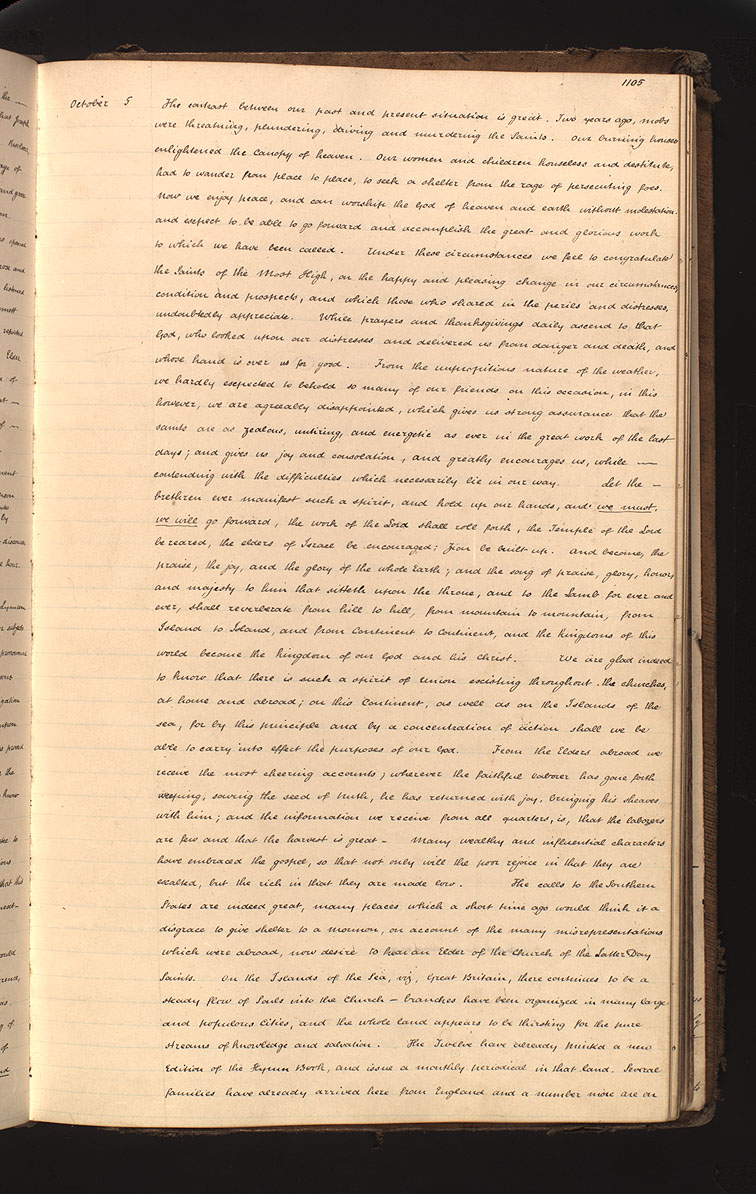 1105
October 5 The contrast between our past and present situation is great. Two years ago, mobs
were threatning, plundering, driving and murdering the Saints. Our burning houses
enlightened the Canopy of heaven. Our women and children houseless and destitute,
had to wander from place to place, to seek a shelter from the rage of persecuting foes.
Now we enjoy peace, and can worship the God of heaven and earth without molestation.
and expect to be able to go forward and accomplish the great and glorious work
to which we have been called. Under these circumstances we feel to congratulate
the Saints of the Most High, on the happy and pleasing change in our circumstances,
condition and prospects, and which those who shared in the perils and distresses,
undoubtedly appreciate. While prayers and thanksgivings daily ascend to that
God, who looked upon our distresses and delivered us from danger and death, and
whose hand is over us for good. From the unpropitious nature of the weather,
we hardly expected to behold so many of our friends on this occasion, in this
however, we are agreeably disappointed, which gives us strong assurance that the
saints are as zealous, untiring, and energetic as ever in the great work of the last
days; and gives us joy and consolation, and greatly encourages us, while —
contending with the difficulties which necessarily lie in our way. Let the —
brethren ever manifest such a spirit, and hold up our hands, and we must,
we will go forward, the work of the Lord shall roll forth, the Temple of the Lord
be reared, the elders of Israel be encouraged; Zion be built up. and become, the
praise, the joy, and the glory of the whole Earth; and the song of praise, glory, honor,
and majesty to him that sitteth upon the throne, and to the Lamb for ever and
ever, shall reverberate from hill to hill, from mountain to mountain, from
Island to Island, and from Continent to Continent, and the Kingdoms of this
world become the Kingdom of our God and his Christ. We are glad indeed
to know that there is such a spirit of union existing throughout the churches,
at home and abroad; on this Continent, as well as on the Islands of the
sea, for by this principle and by a concentration of action shall we be
able to carry into effect the purposes of our God. From the Elders abroad we
receive the most cheering accounts; wherever the faithful laborer has gone forth
weeping, sowing the seed of truth, he has returned with joy, bringing his sheaves
with him; and the information we receive from all quarters, is, that the laborers
are few and that the harvest is great – Many wealthy and influential characters
have embraced the gospel, so that not only will the poor rejoice in that they are
exalted, but the rich in that they are made low. The calls to the Southern
States are indeed great, many places which a short time ago would think it a
disgrace to give shelter to a mormon, on account of the many misrepresentations
which were abroad, now desire to hear an Elder of the Church of the Latter Day
Saints. On the Islands of the Sea, viz, Great Britain, there continues to be a
steady flow of Souls into the Church – branches have been organized in many large
and populous Cities, and the whole land appears to be thirsting for the pure
streams of knowledge and salvation. The Twelve have already printed a new
Edition of the Hymn Book, and issue a monthly periodical in that land. Several
families have already arrived here from England and a number more are on